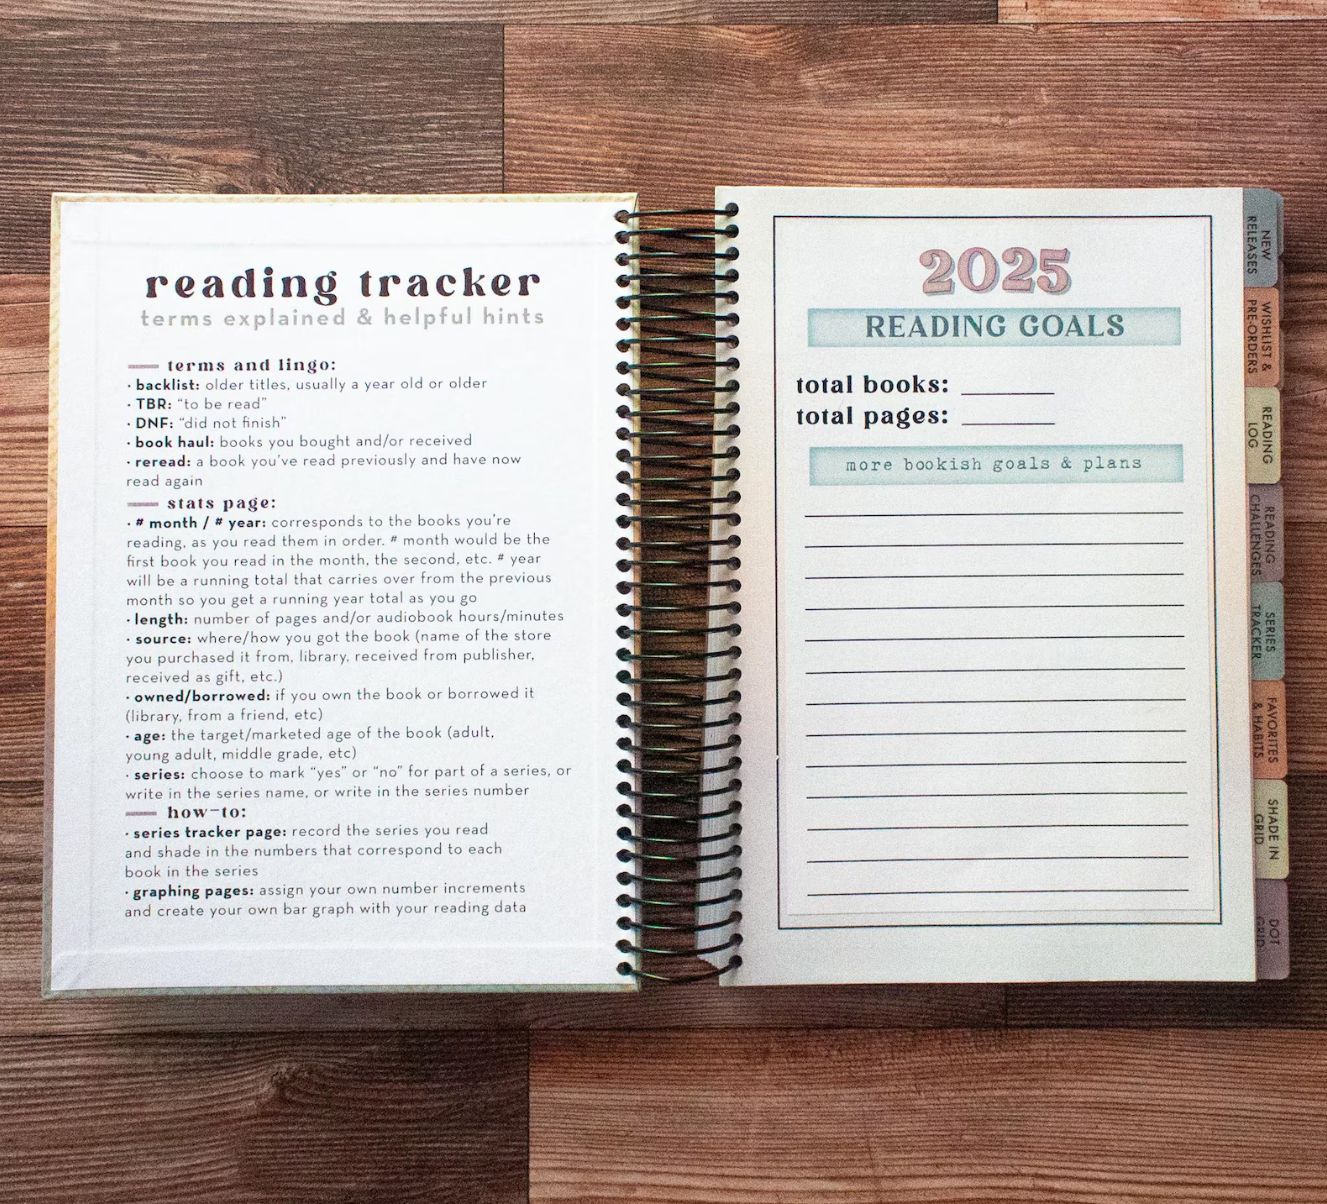 reading tracker
terms explained & helpful hints
terms and lingo:
· backlist: older titles, usually a year old or older
· TBR: “to be read”
· DNF: “did not finish”
· book haul: books you bought and/or received
· reread: a book you've read previously and have now
read again
stats page:
· # month / # year: corresponds to the books you're
reading, as you read them in order. # month would be the
first book you read in the month, the second, etc. # year
will be a running total that carries over from the previous
month so you get a running year total as you go
· length: number of pages and/or audiobook hours/minutes
· source: where/how you got the book (name of the store
you purchased it from, library, received from publisher,
received as gift, etc.)
· owned/borrowed: if you own the book or borrowed it
(library, from a friend, etc)
· age: the target/marketed age of the book (adult,
young adult, middle grade, etc)
· series: choose to mark “yes” or “no” for part of a series, or
write in the series name, or write in the series number
how-to:
· series tracker page: record the series you read
and shade in the numbers that correspond to each
book in the series
· graphing pages: assign your own number increments
and create your own bar graph with your reading data
2025
READING GOALS
total books:
total pages:
more bookish goals & plans
NEW
RELEASES
WISHLIST &
PRE-ORDERS
READING
LOG
READING
CHALLENGES
SERIES
TRACKER
FAVORITES
& HABITS
SHADE IN
GRID
DOT
GRID